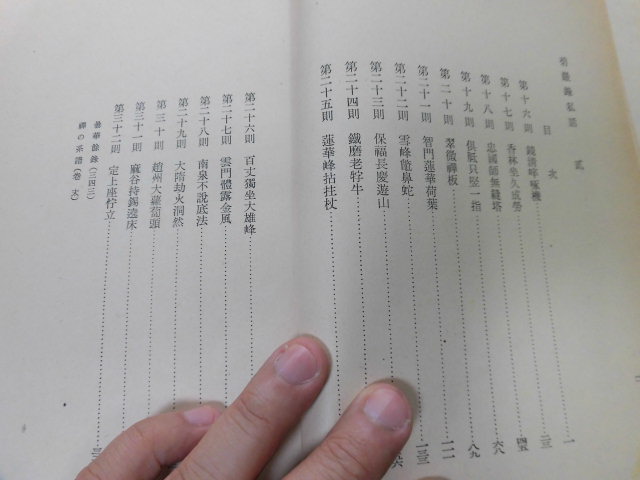 碧巖錄私語 貳
目次
第十六則 鏡清啐啄機 一
第十七則 香林坐久成勞
第十八則 忠國師無縫塔 四五
第十九則 俱胝只竪一指 六八
第二十則 翠微禪板 八九
第二十一則 智門蓮華荷葉 一一一
第二十二則 雪峰鼈鼻蛇 一三三
第二十三則 保福長慶遊山
第二十四則 鐵磨老牸牛
第二十五則 蓮華峰拈拄杖
第二十六則 百丈獨坐大雄峰
第二十七則 雲門體露金風
第二十八則 南泉不說底法
第二十九則 大隋劫火洞然
第三十則 趙州大蘿蔔頭
第三十一則 麻谷持錫遶床
第三十二則 定上座佇立
曇華餘錄(三四三)
禪の茶譜(卷末)